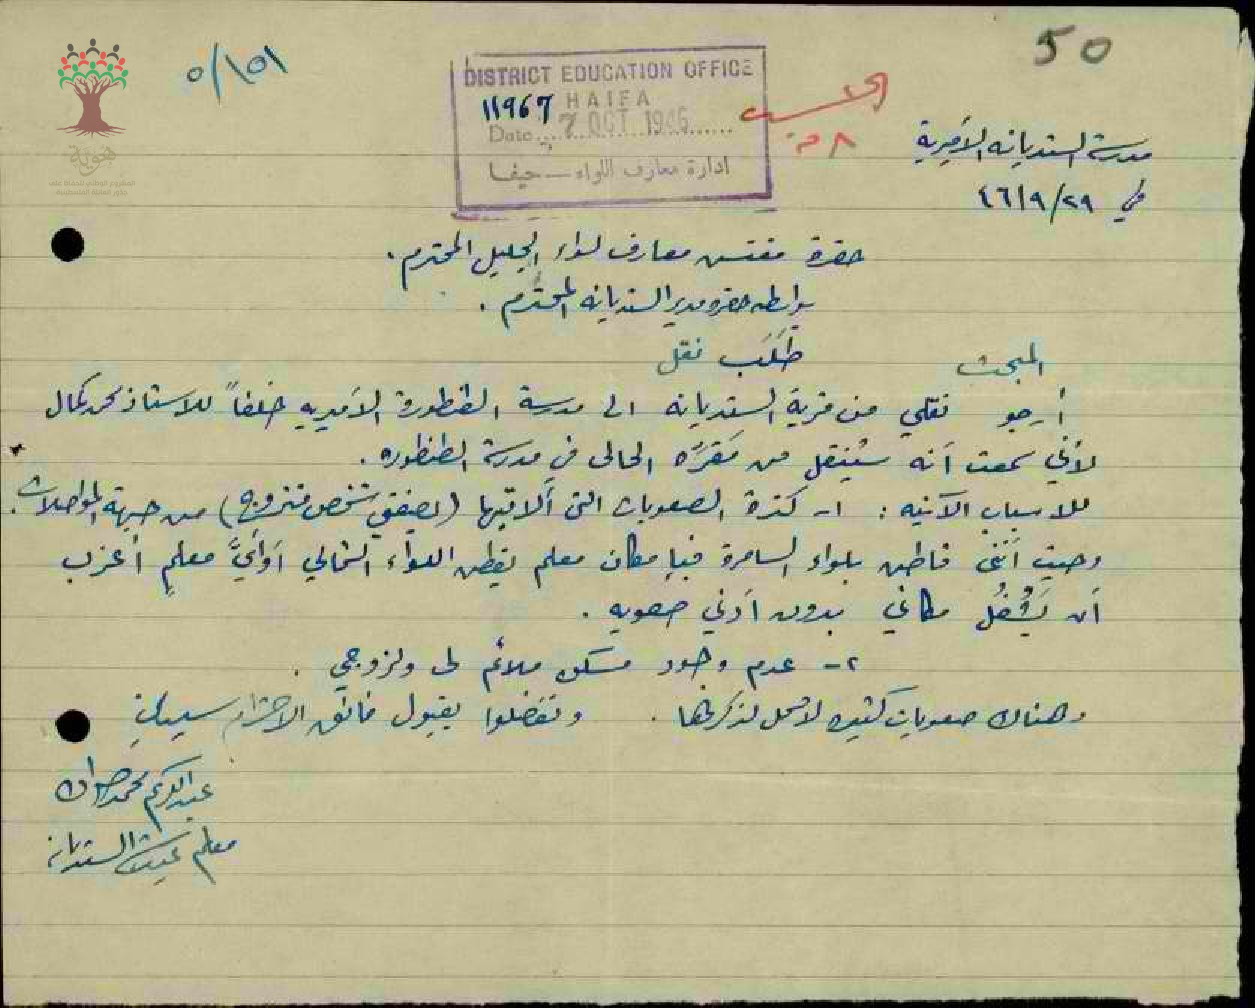 50
٥/١٥١
DISTRICT EDUCATION OFFICE
HAIFA
11967
Date 7 OCT 1946
ادارة معارف اللواء - حيفا
هوية
مدرسة السنديانه الأميرية
في ٢٩/٩/٤٦
حضرة مفتش معارف لواء الجليل المحترم.
بواسطه حضرة مدير السنديانه المحترم.
المبحث طلب نقل
أرجو نقلي من قرية السنديانه الى مدرسة الطنطورة الأميريه خلفاً للاستاذ محمد كمال
لأني سمعت أنه سينقل من مقره الحالي في مدرسة الطنطوره.
للاسباب الآتيه: ١- كثرة الصعوبات التي ألاقيها (بصفتي شخص متزوج) من جهة المواصلات.
وحيث أنني قاطن بلواء السامرة فبإمكان معلم يقطن اللواء الشمالي أو أيَّ معلم أعزب
أن يشغل مكاني بدون أدنى صعوبه.
٢- عدم وجود مسكن ملائم لي ولزوجي.
وهناك صعوبات كثيره لا محل لذكرها. وتفضلوا بقبول فائق الاحترام سيدي
عبد الكريم محمد
معلم السنديانه